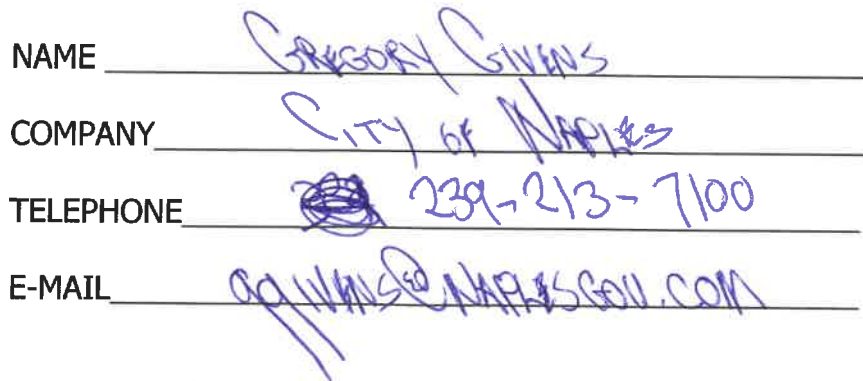 NAME GREGORY GIVENS
COMPANY CITY OF NAPLES
TELEPHONE 239-213-7100
E-MAIL ggivens@NAPLESGOV.COM